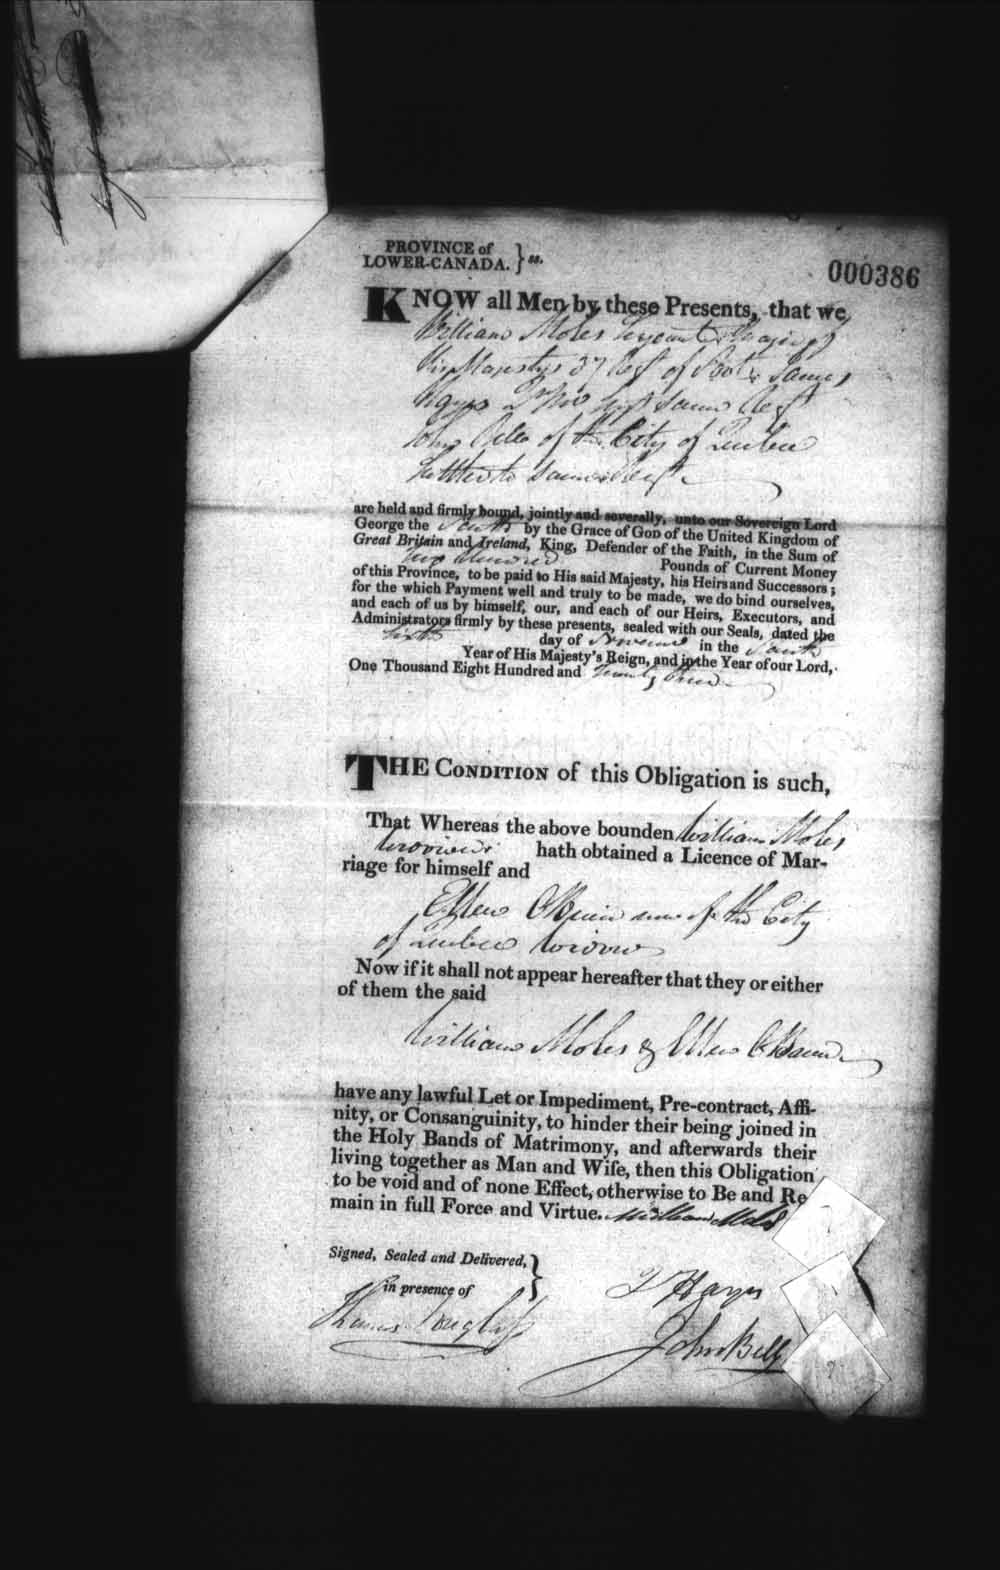 PROVINCE of
LOWER-CANADA. } ss.
000386
KNOW all Men by these Presents, that we
William Moles Serjeant Major of
His Majestys 37 Regt of Foot & James
Hayes Regt
John of the City of Quebec
same Regt
are held and firmly bound, jointly and severally, unto our Sovereign Lord
George the Fourth by the Grace of GOD of the United Kingdom of
Great Britain and Ireland, King, Defender of the Faith, in the Sum of
Two Hundred Pounds of Current Money
of this Province, to be paid to His said Majesty, his Heirs and Successors;
for the which Payment well and truly to be made, we do bind ourselves,
and each of us by himself, our, and each of our Heirs, Executors, and
Administrators firmly by these presents, sealed with our Seals, dated the
day of in the Fourth
Year of His Majesty's Reign, and in the Year of our Lord,
One Thousand Eight Hundred and Twenty three
THE CONDITION of this Obligation is such,
That Whereas the above bounden William Moles
Widower hath obtained a Licence of Mar-
riage for himself and
Ellen now of the City
of Quebec Widow
Now if it shall not appear hereafter that they or either
of them the said
William Moles & Ellen
have any lawful Let or Impediment, Pre-contract, Affi-
nity, or Consanguinity, to hinder their being joined in
the Holy Bands of Matrimony, and afterwards their
living together as Man and Wife, then this Obligation
to be void and of none Effect, otherwise to Be and Re-
main in full Force and Virtue. William Moles
Signed, Sealed and Delivered, }
in presence of
J Hayes
Thomas Douglass
John Bell